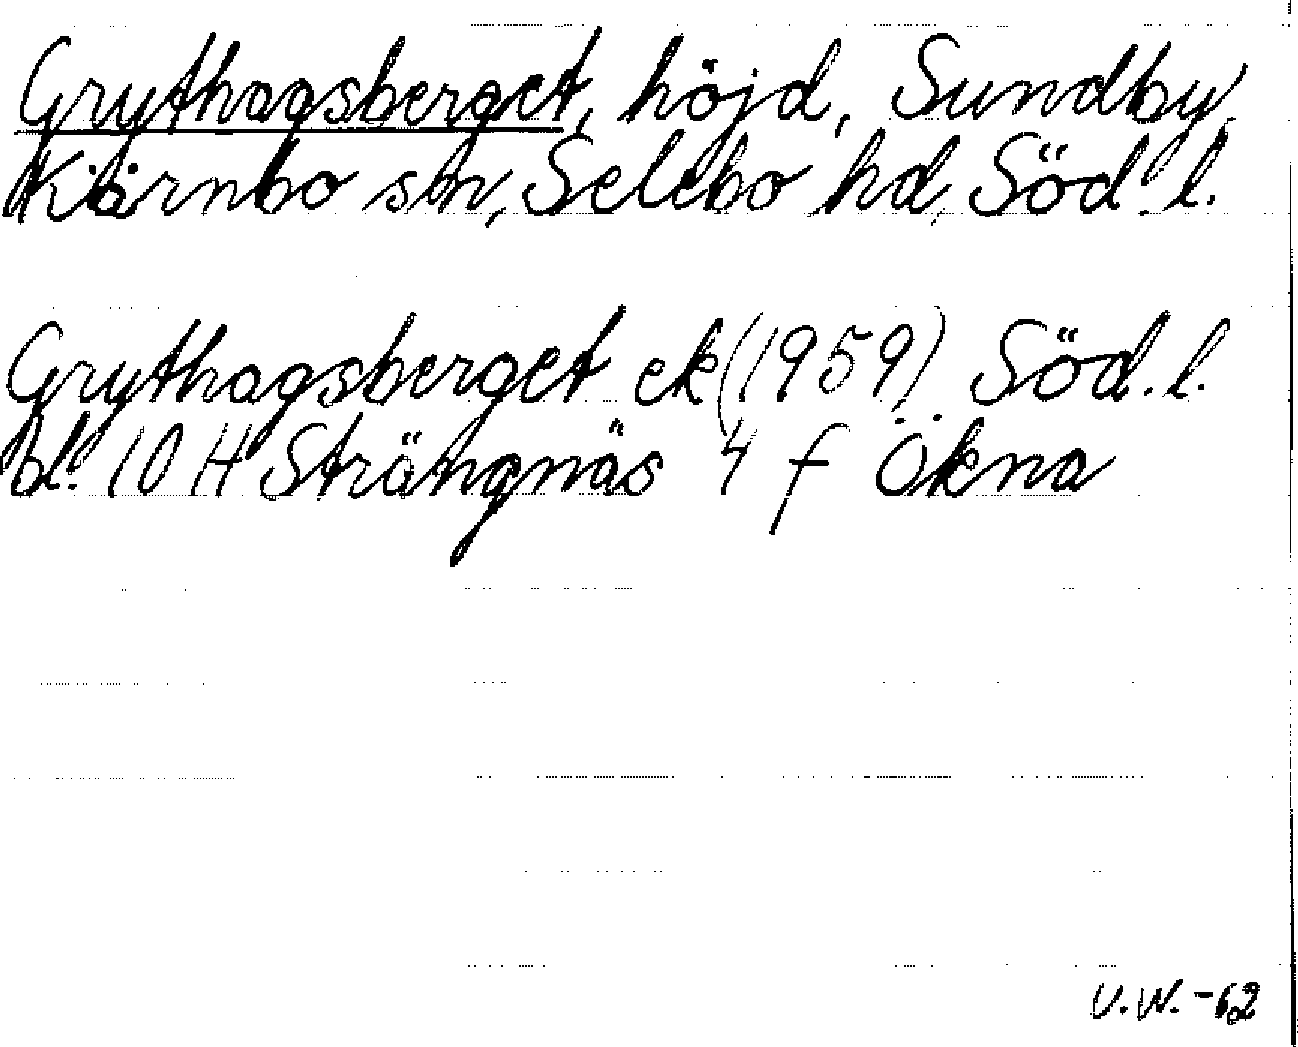 Grythagsberget, höjd, Sundby,
Kärnbo sn, Selebo hd, Söd. l.
Grythagsberget ek (1959) Söd. l.
bl. 10 H Strängnäs 4 f Ökna
V.W. -62